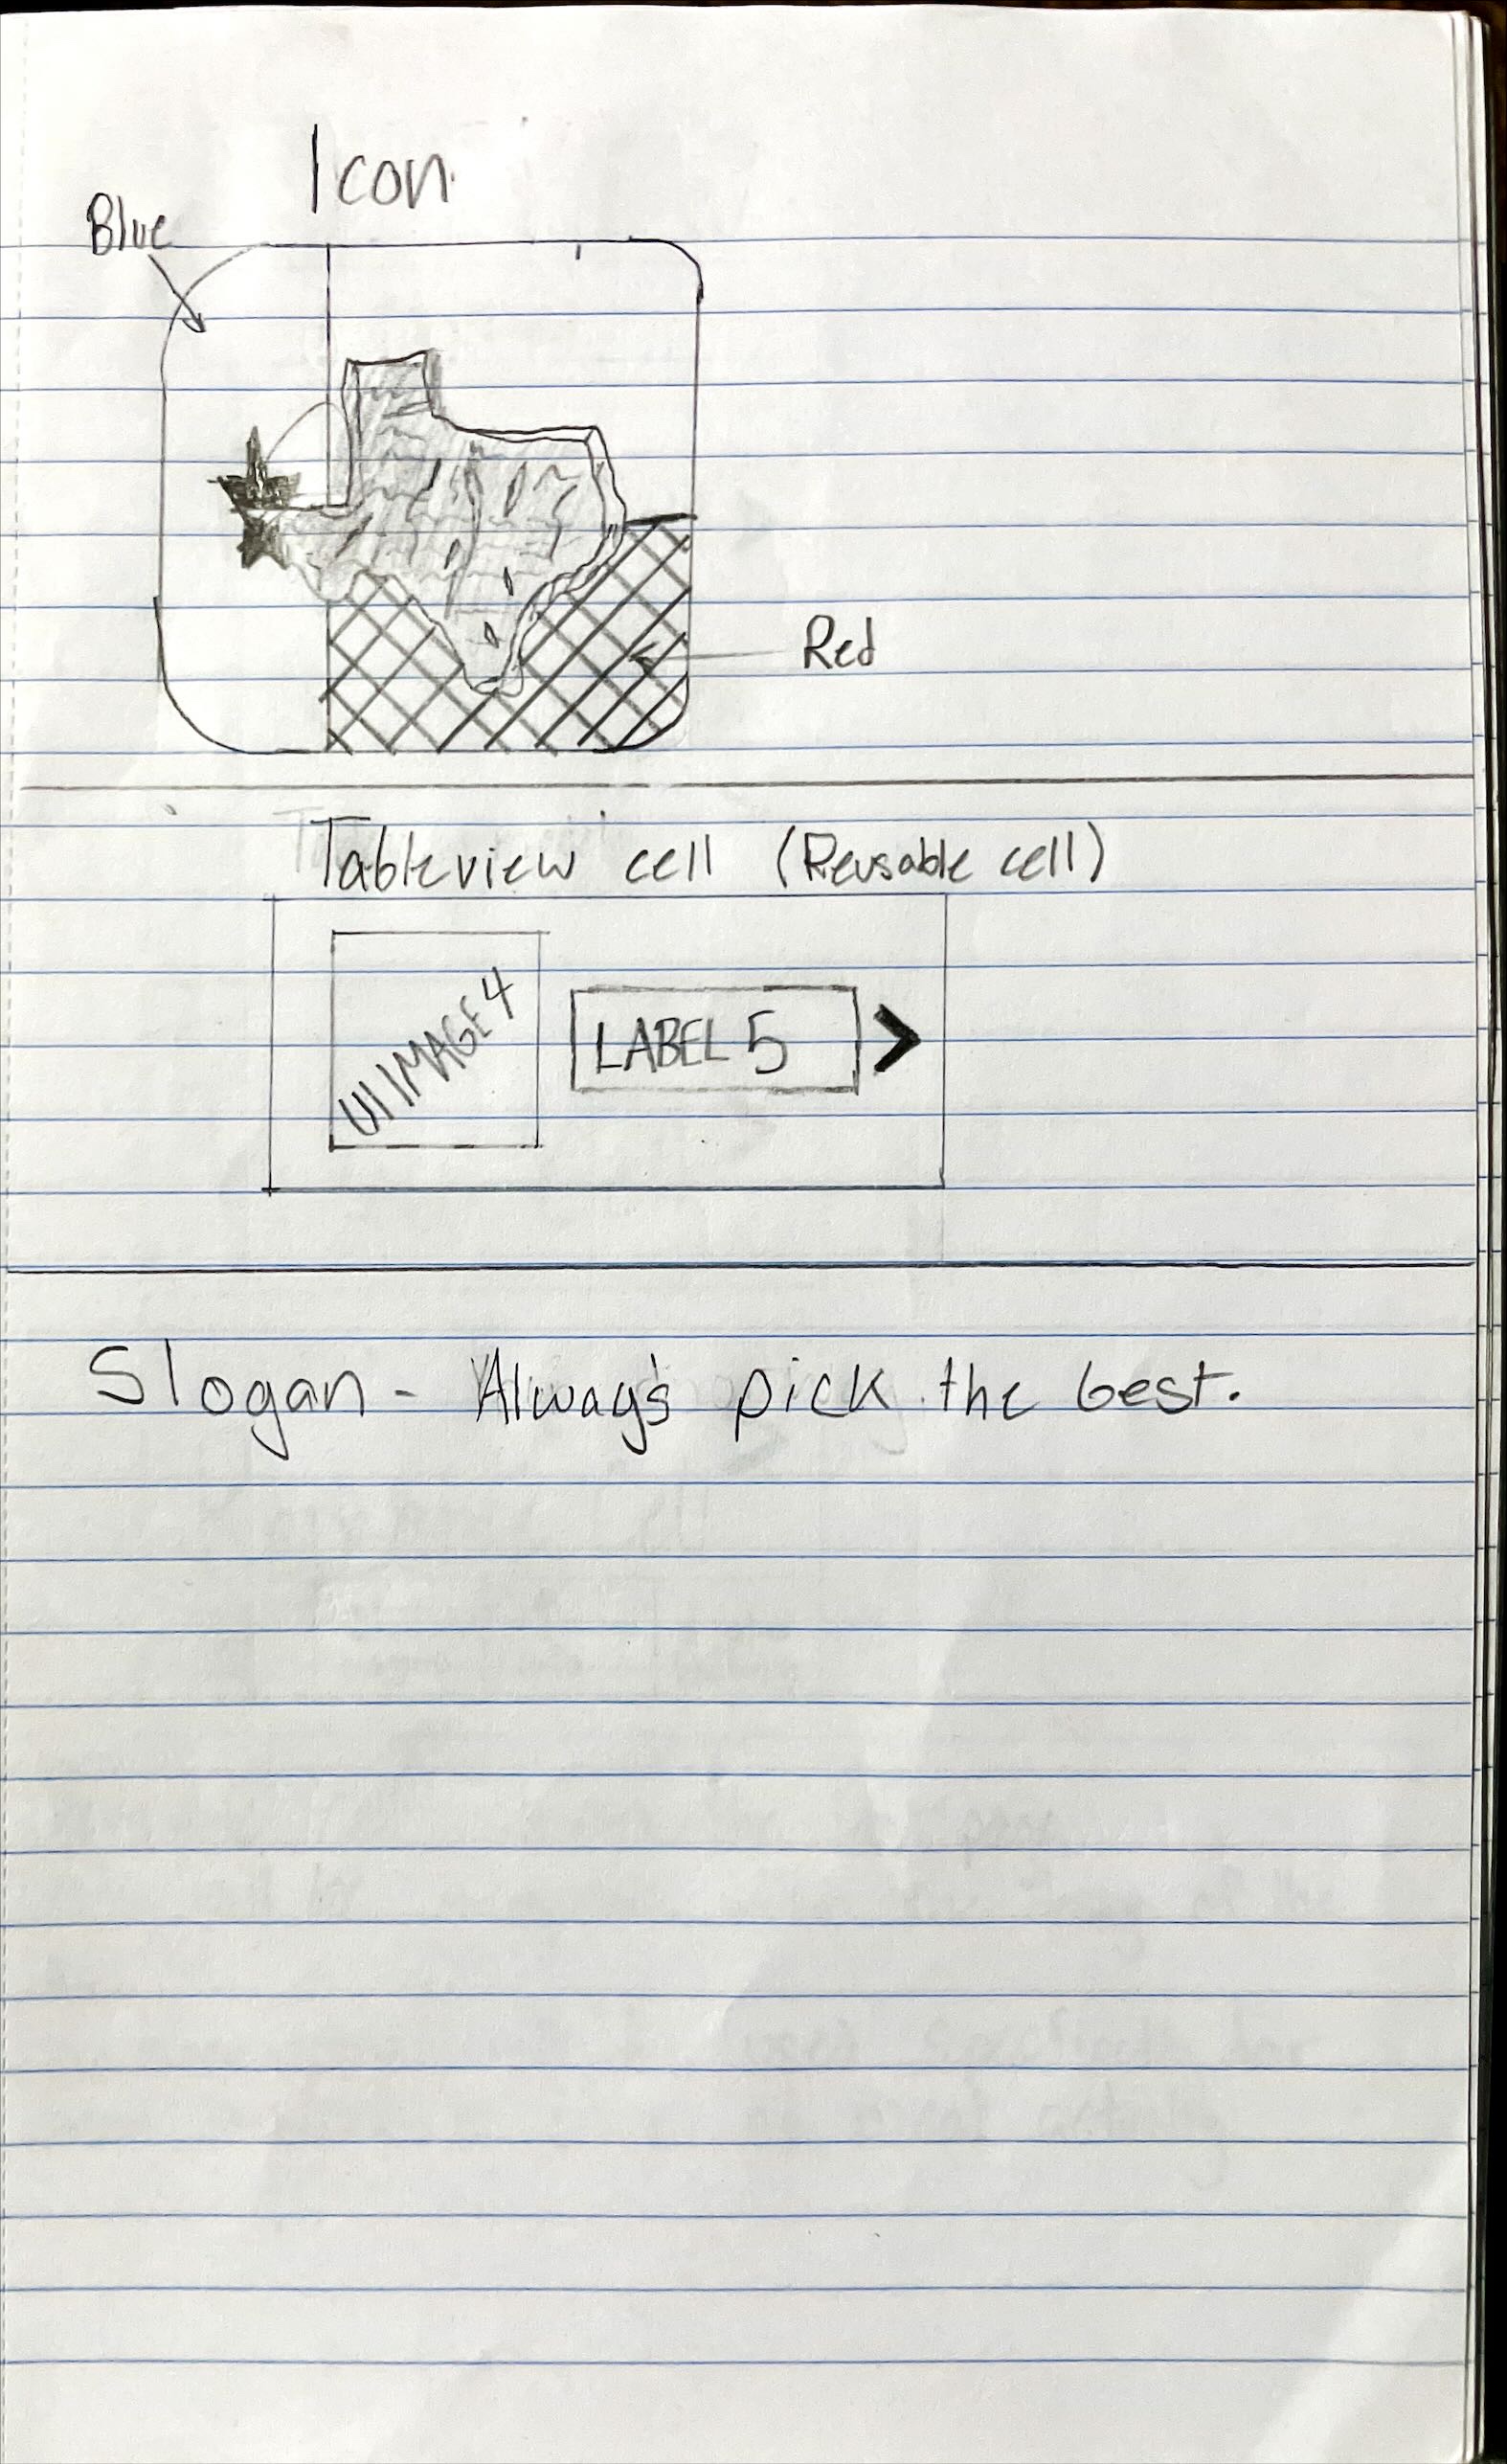 Icon
Blue
Red
Tableview cell (Reusable cell)
UIIMAGE 4
LABEL 5
Slogan - Always pick the best.